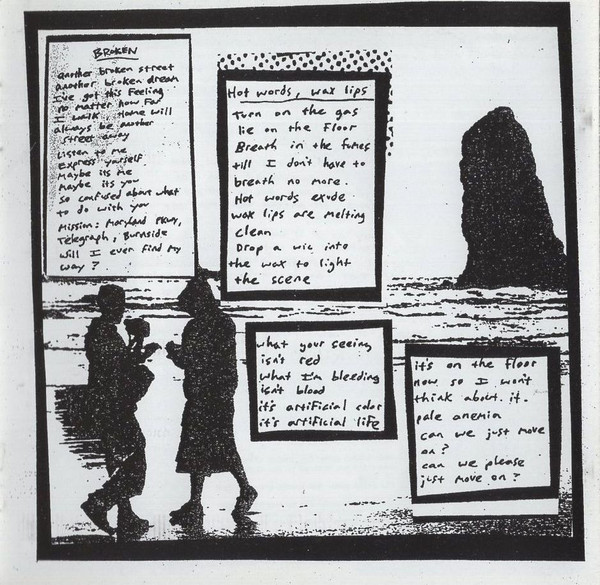 BROKEN
another broken street
another broken dream
I've got this feeling
no matter how far
I walk Home will
always be another
street away
Listen to me
Express yourself
Maybe its me
Maybe its you
so confused about what
to do with you
Mission: Maryland Pkwy,
Telegraph, Burnside
will I ever find my
way?
Hot words, wax lips
Turn on the gas
lie on the floor
Breath in the fumes
till I don't have to
breath no more.
Hot words exude
wax lips are melting
clean
Drop a wic into
the wax to light
the scene
what your seeing
isn't red
what I'm bleeding
isn't blood
it's artificial color
it's artificial life
it's on the floor
now so I won't
think about it.
pale anemia
can we just move
on?
can we please
just move on?